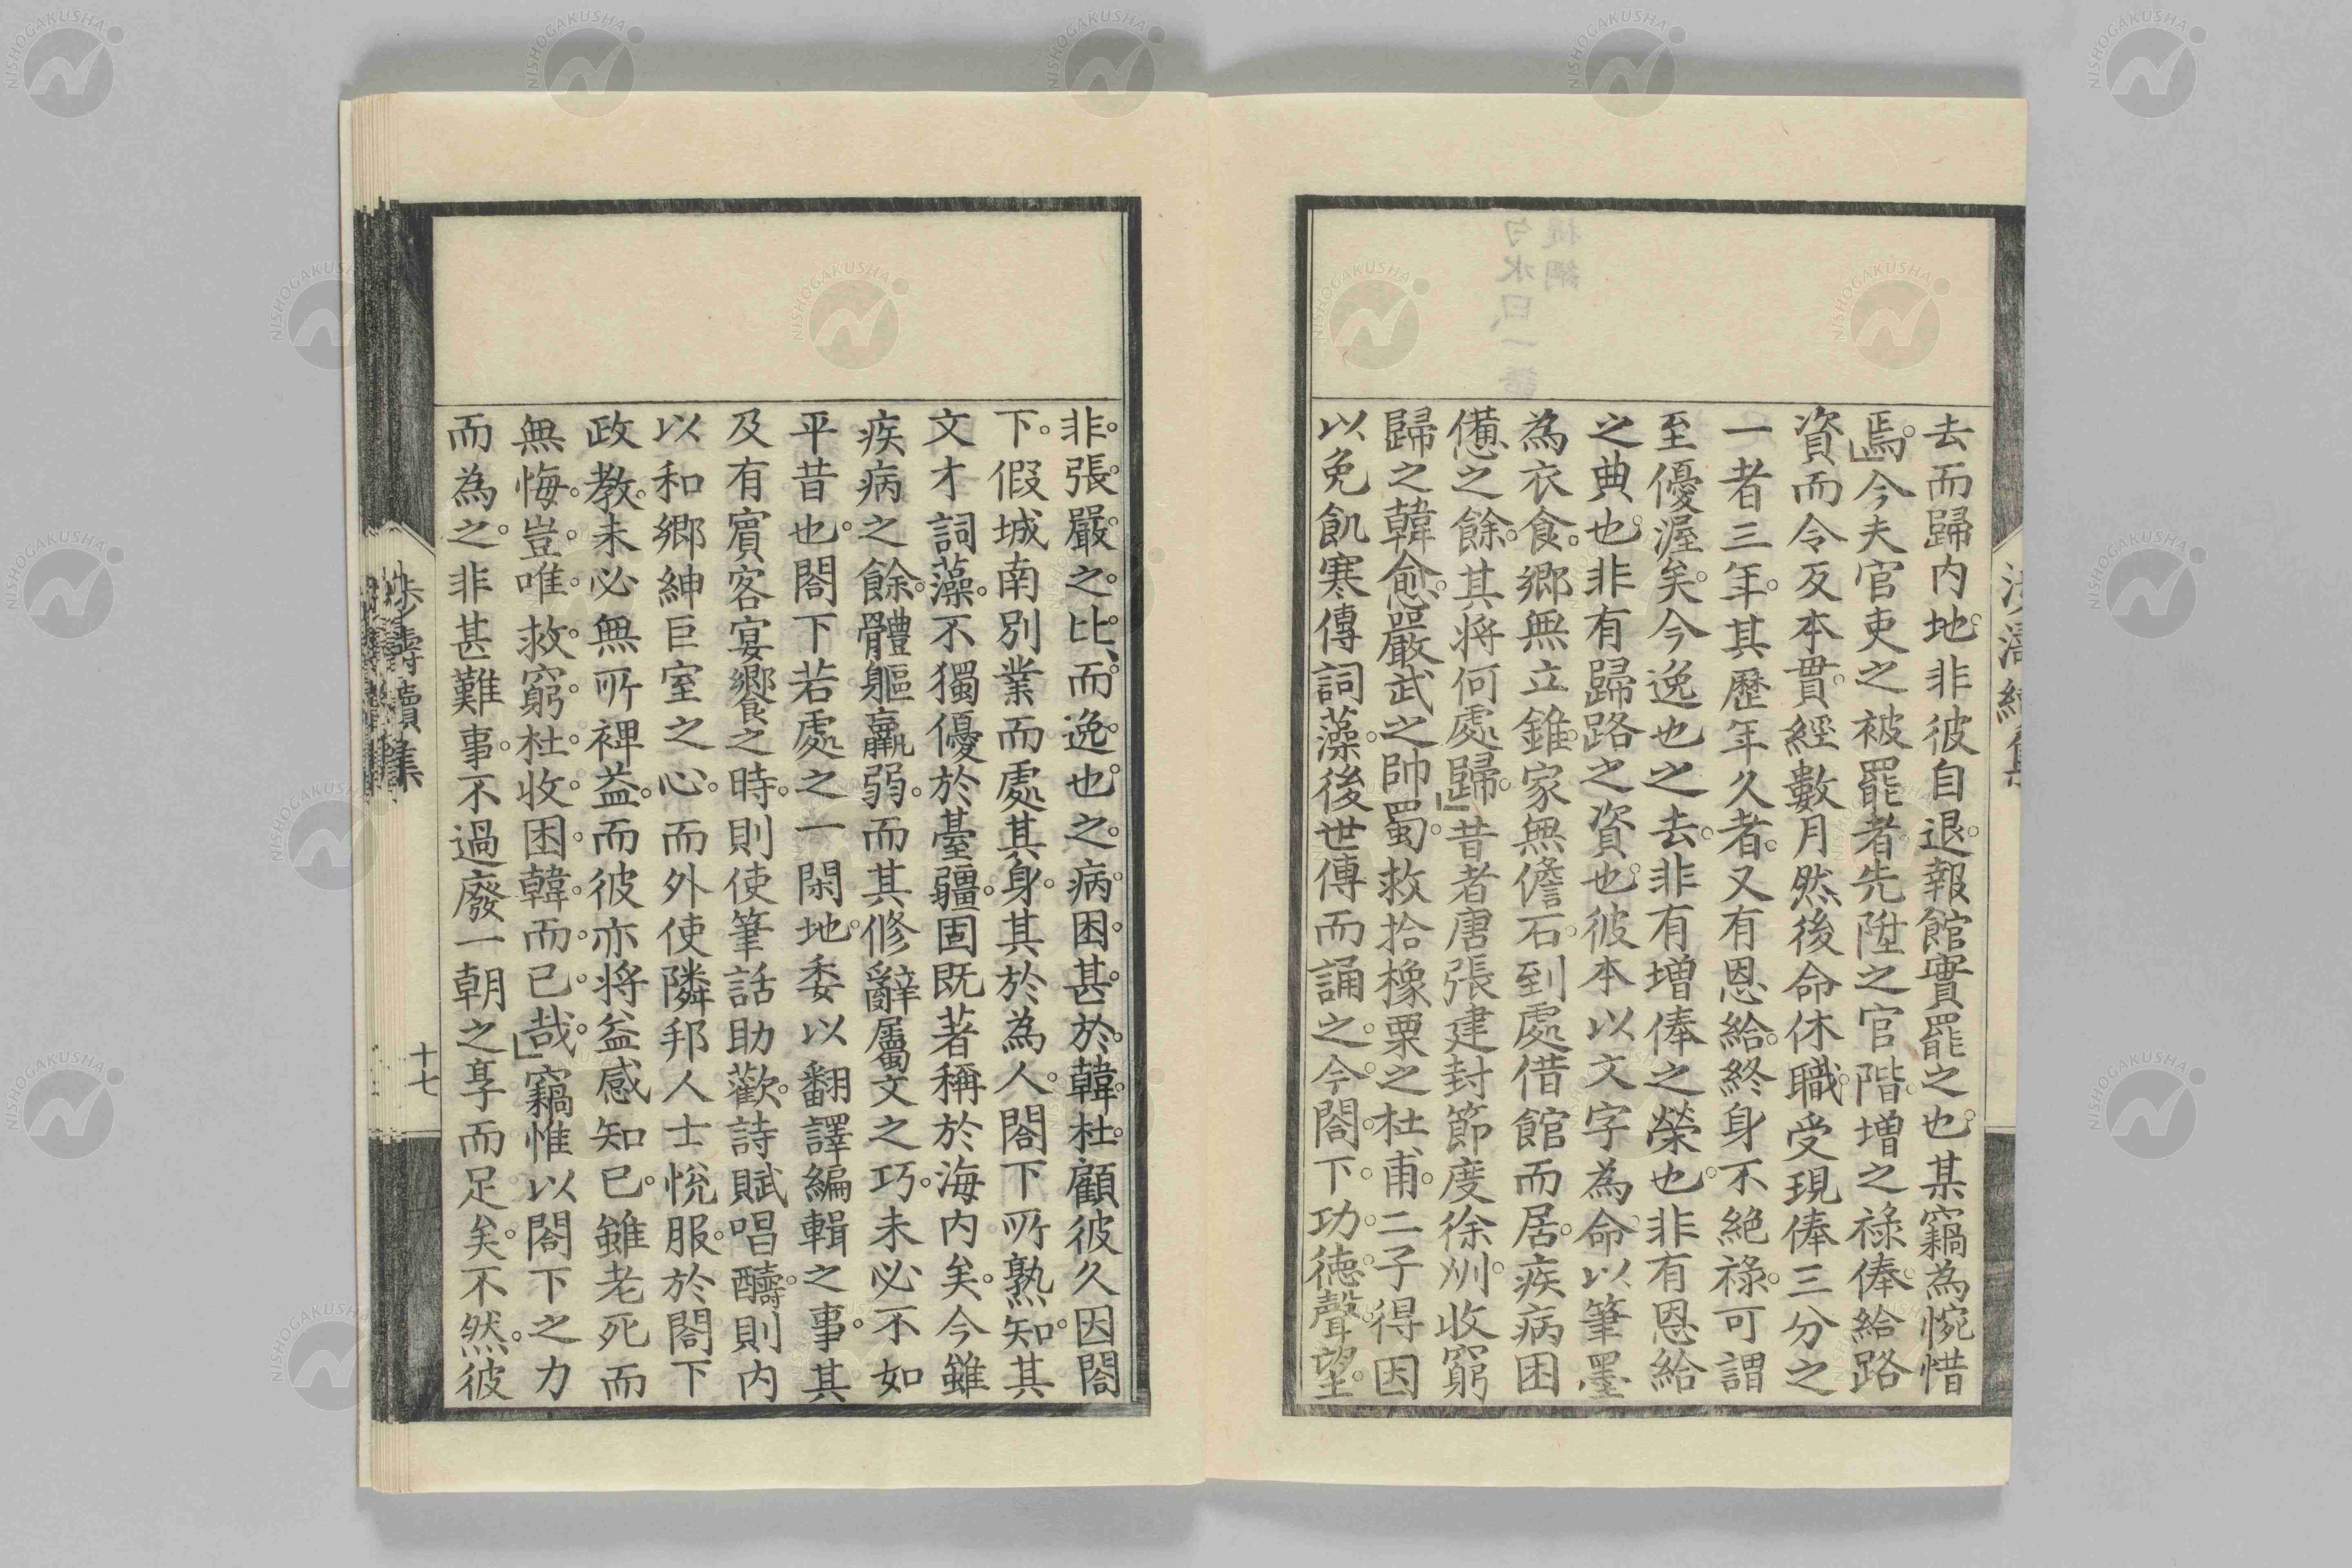 去而歸内地。非彼自退。報館實罷之也。某竊為惋惜
焉。」今夫官吏之被罷者先陞之官階。增之祿俸。給路
資而令反本貫。經數月然後命休職。受現俸三分之
一者三年。其歷年久者。又有恩給。終身不絶祿。可謂
至優渥矣。今逸也之去。非有增俸之榮也。非有恩給
之典也。非有歸路之資也。彼本以文字為命。以筆墨
為衣食。鄉無立錐。家無儋石。到處借館而居。疾病困
憊之餘。其將何處歸。」昔者唐張建封節度徐洲。收窮
歸之韓愈。嚴武之帥蜀。救拾橡栗之杜甫。二子得因
以免飢寒傳詞藻。後世傳而誦之。今。閤。下。功。德。聲。望。
非。張。嚴。之。比、而。逸。也。之。病。困。甚。於。韓。杜。顧彼久因閤
下。假城南別業而處其身。其於為人。閤下所熟知。其
文才詞藻。不獨優於臺疆。固既著稱於海内矣。今雖
疾病之餘。體軀羸弱。而其修辭屬文之巧。未必不如
平昔也。閤下若處之一閑地。委以翻譯編輯之事。其
及有賓客宴饗之時。則使筆話助歡。詩賦唱醻。則内
以和鄉紳巨室之心。而外使隣邦人士悅服。於閤下
政教。未必無所裨益。而彼亦將益感知己。雖老死而
無悔。豈。唯。救。窮。杜。收。困。韓。而。已。哉。」竊惟以閤下之力
而為之。非甚難事。不過廢一朝之享而足矣。不然。彼
濤續集
十七